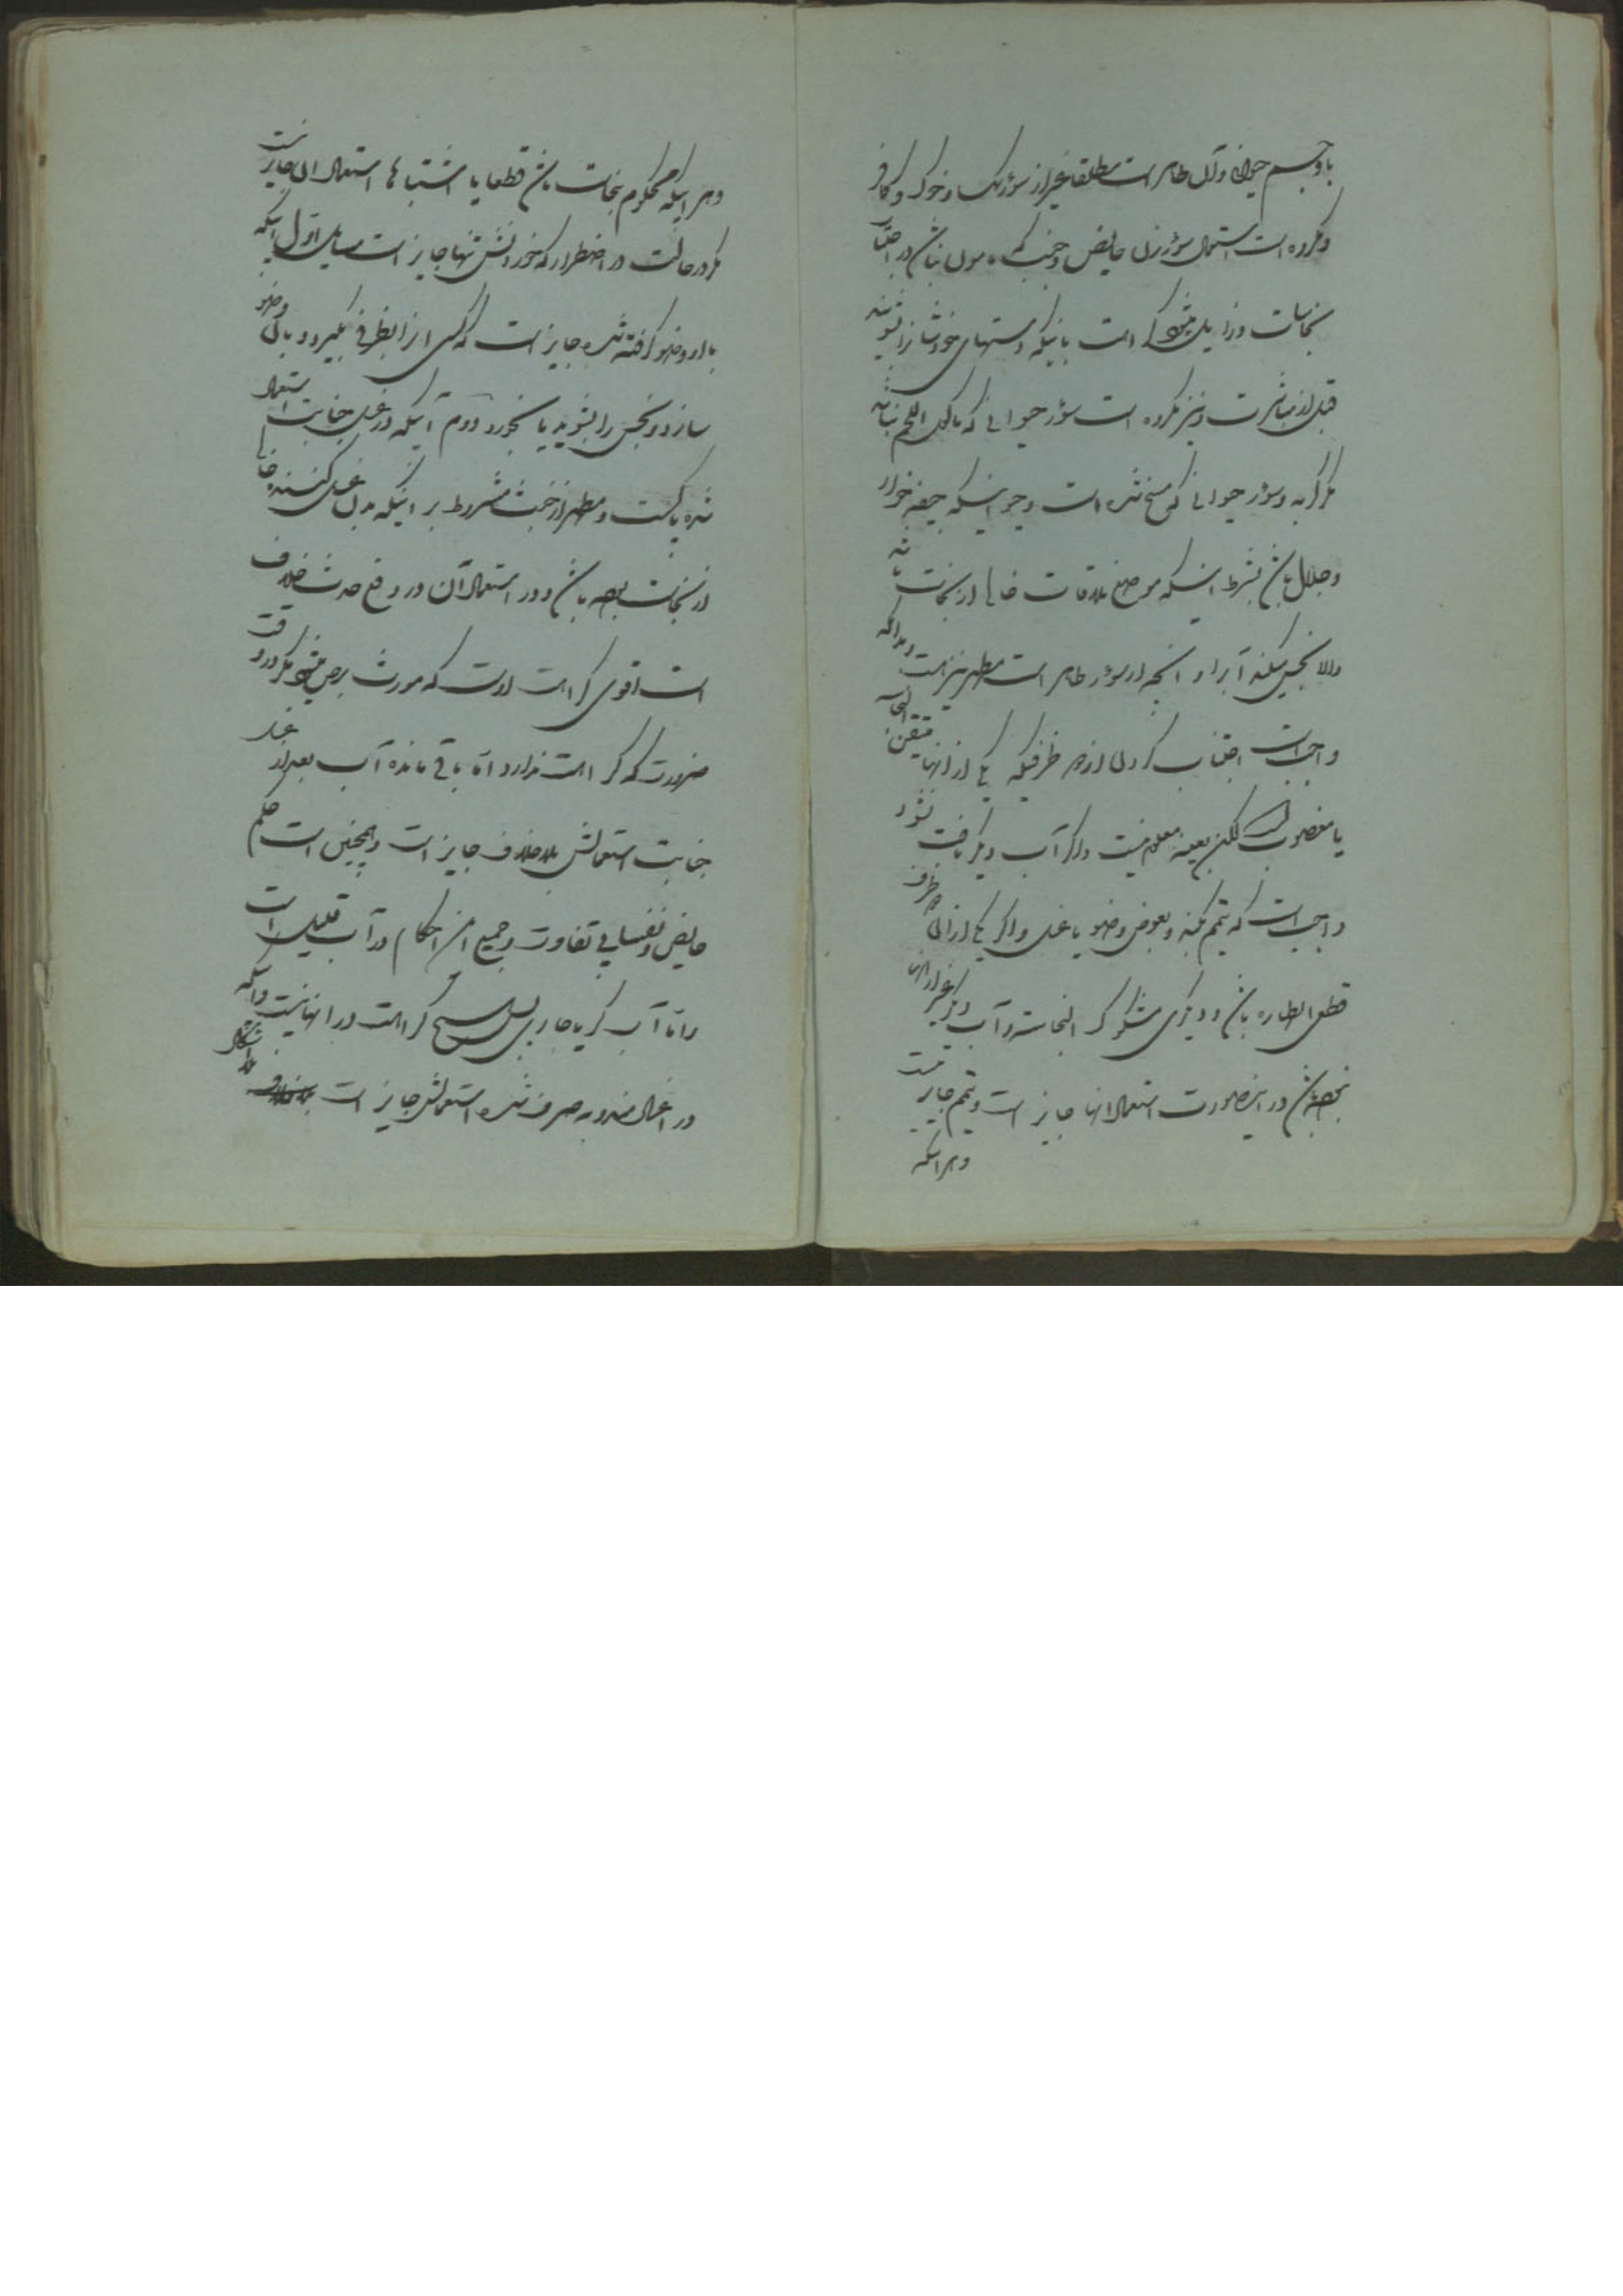 باو جسم حیوان و آن طاهر است مطلقا غیر از سؤر سک و خوک و کافر
و مکروه است استعمال سؤر زن حایض و جنب که مامون نباشن در اجتناب
نجاسات و زایل میشود کراهت بانیکه دستهای خودشانرا بشویند
قبل از مباشرت و نیز مکروه است سؤر حیوانی که ماکول اللحم نباشد
مکر کربه و سؤر حیوانی که مسخ شده است و حیوانیکه جیفه خوار
و جلال باشن بشرط اینکه موضع ملاقات خالی از نجاست باشد
والا نجس میکند آبرا و آنچه از سؤر طاهر است مطهر نیز هست و بدانکه
واجبست اجتناب کردن از دو ظرفیکه یکی از آنها متیقن النجاسة
یا مغصوب است لکن بعینه معلوم نیست و اکر آب دیکر یافت نشود
واجبست که تیمم بکند و بعوض وضو یا غسل و اکر یکی از آن دو ظرف
قطعی الطهاره باشن و دیکری مشکوک النجاسة و آب دیکر غیر از آنها
نبوده باشن در اینصورت استعمال آنها جایز است و تیمم جایز نیست
و هر آبیکه
و هر آبیکه محکوم بنجاست باشن قطعا یا اشتباها استعمال آن جایز نیست
مکر در حالت اضطرار که خوردنش تنها جایز است مسایل اول آبیکه
با او وضو کرفته شده جایز است که کسی آنرا بظرفی بکیرد و باآن وضو
سازد و نجس را بشوید یا بخورد دوم آبیکه در غسل جنابت استعمال
شده پاکست و مطهر از خبث مشروط بر اینکه بدن غسل کننده خالی
از نجاست بوده باشن و در استعمال آن در رفع حدث خلاف
است اقوی کراهت اوست که مورث برص میشود مکر در وقت
ضرورت که کراهت ندارد اما باقی مانده آب بعد از غسل
جنابت استعمالش بلا خلاف جایز است و همچنین است حکم
حایض و نفسا بی تفاوت و جمیع این احکام در آب قلیل است
و اما آب کر یا جاری پس هیچ کراهت در آنها نیست و آبیکه
در اغسال مندوبه صرف شده استعمالش جایز است بلا اشکال